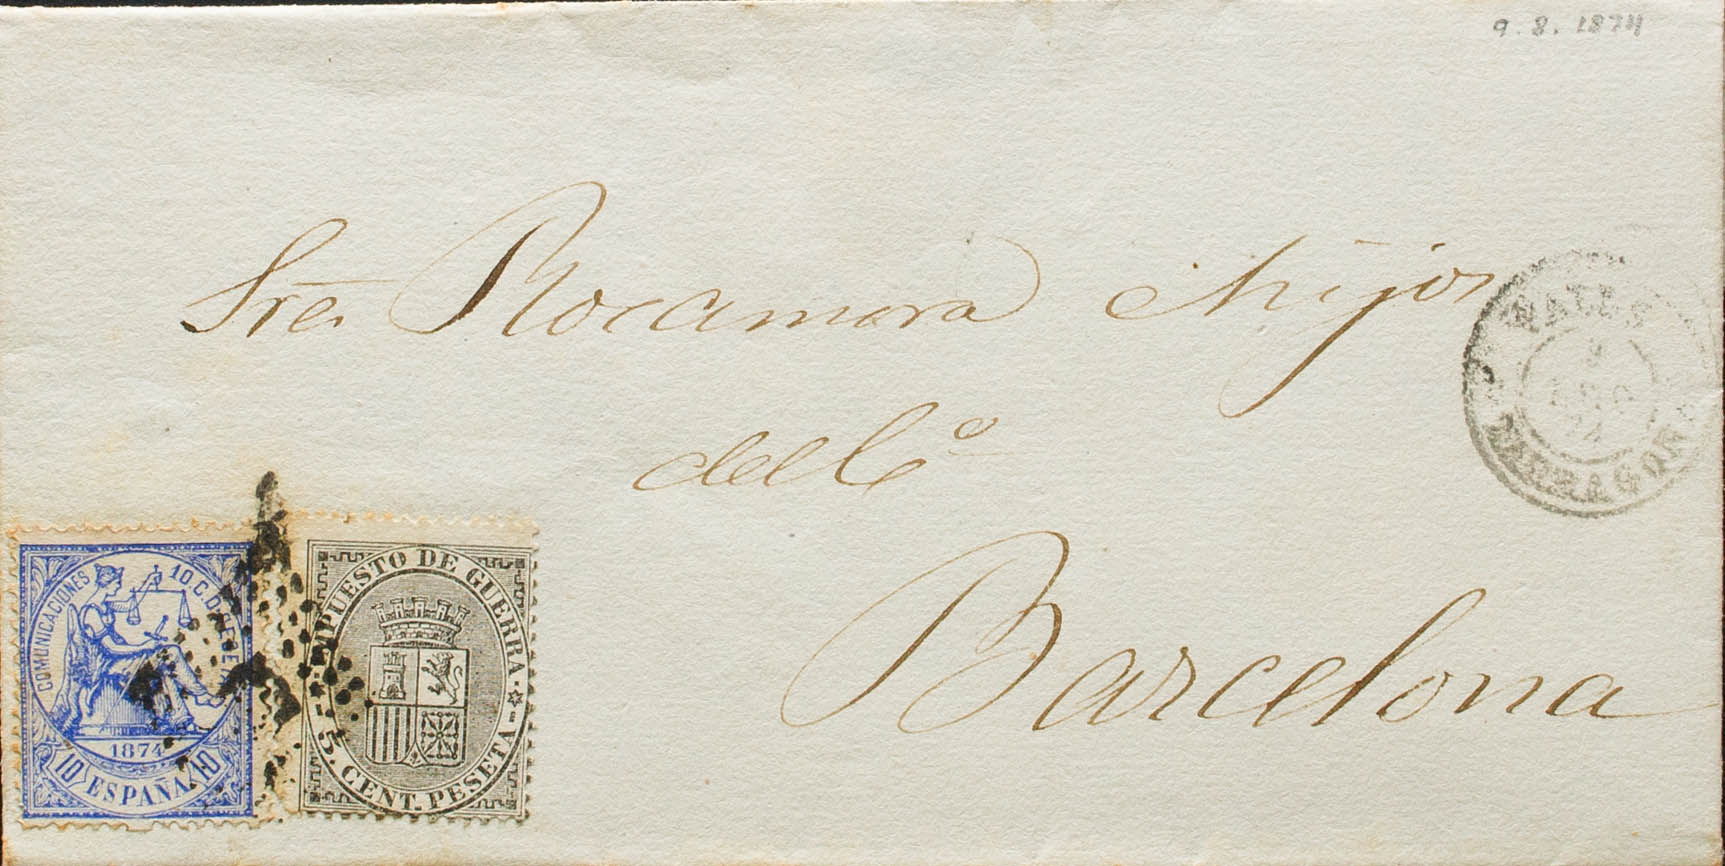 9.8.1874
Sres. Rocamora é hijos
del Cº
Barcelona
VALLS
9
AGO
74
TARRAGONA
COMUNICACIONES 10 C. D PESETA
1874
10 ESPAÑA 10
IMPUESTO DE GUERRA
5. CENT. PESETA